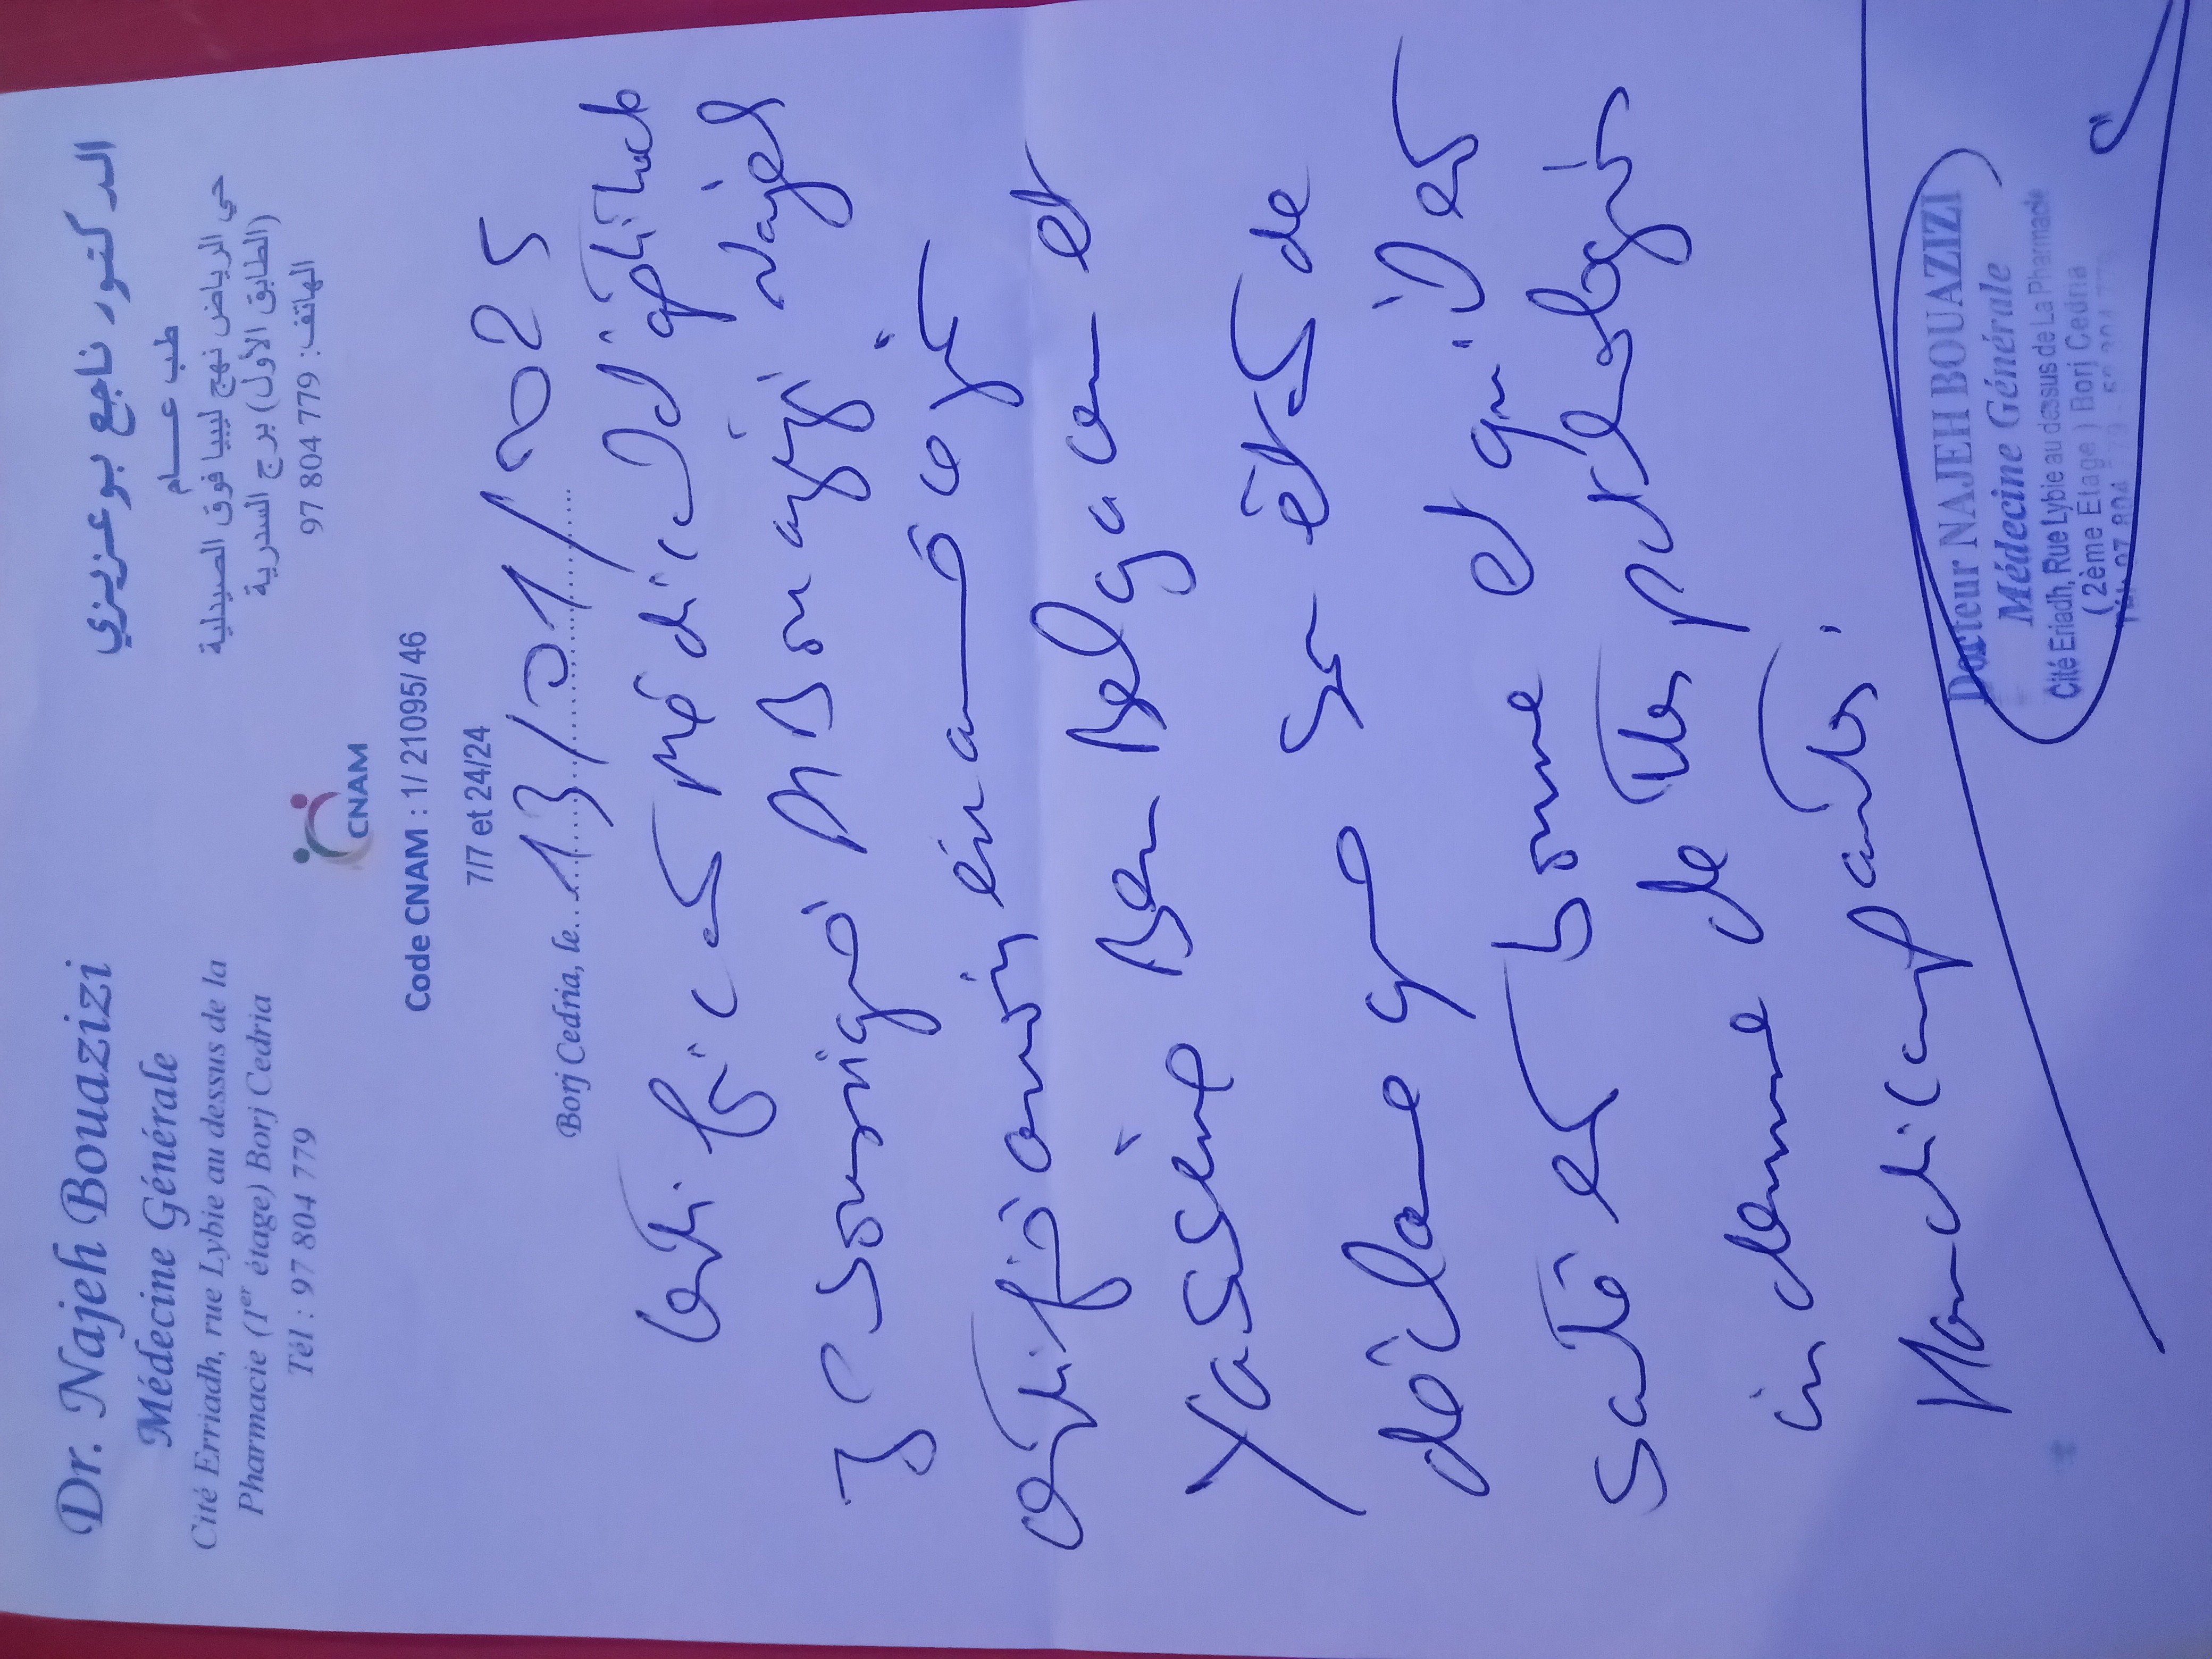 Dr. Najeh Bouazizi
Médecine Générale
Cité Erriadh, rue Lybie au dessus de la
Pharmacie (1er étage) Borj Cedria
Tél : 97 804 779
الدكتور ناجع بوعزيزي
طب عـــام
حي الرياض نهج ليبيا فوق الصيدلية
(الطابق الأول) برج السدرية
الهاتف: 779 804 97
CNAM
Code CNAM : 1/ 21095/ 46
7/7 et 24/24
Borj Cedria, le 13/01/2025
Certificat Médical d'aptitude
Je soussigné Dr Bouazizi Najeh
certifie avoir examiné ce jour
Yassine Ben Belgacem et
déclare que son état de
santé est bonne et qu'il est
indemne de toutes pathologies
handicapantes.
Docteur NAJEH BOUAZIZI
Médecine Générale
Cité Eriadh, Rue Lybie au dessus de La Pharmacie
( 2ème Etage ) Borj Cedria
Tél: 97 804 779